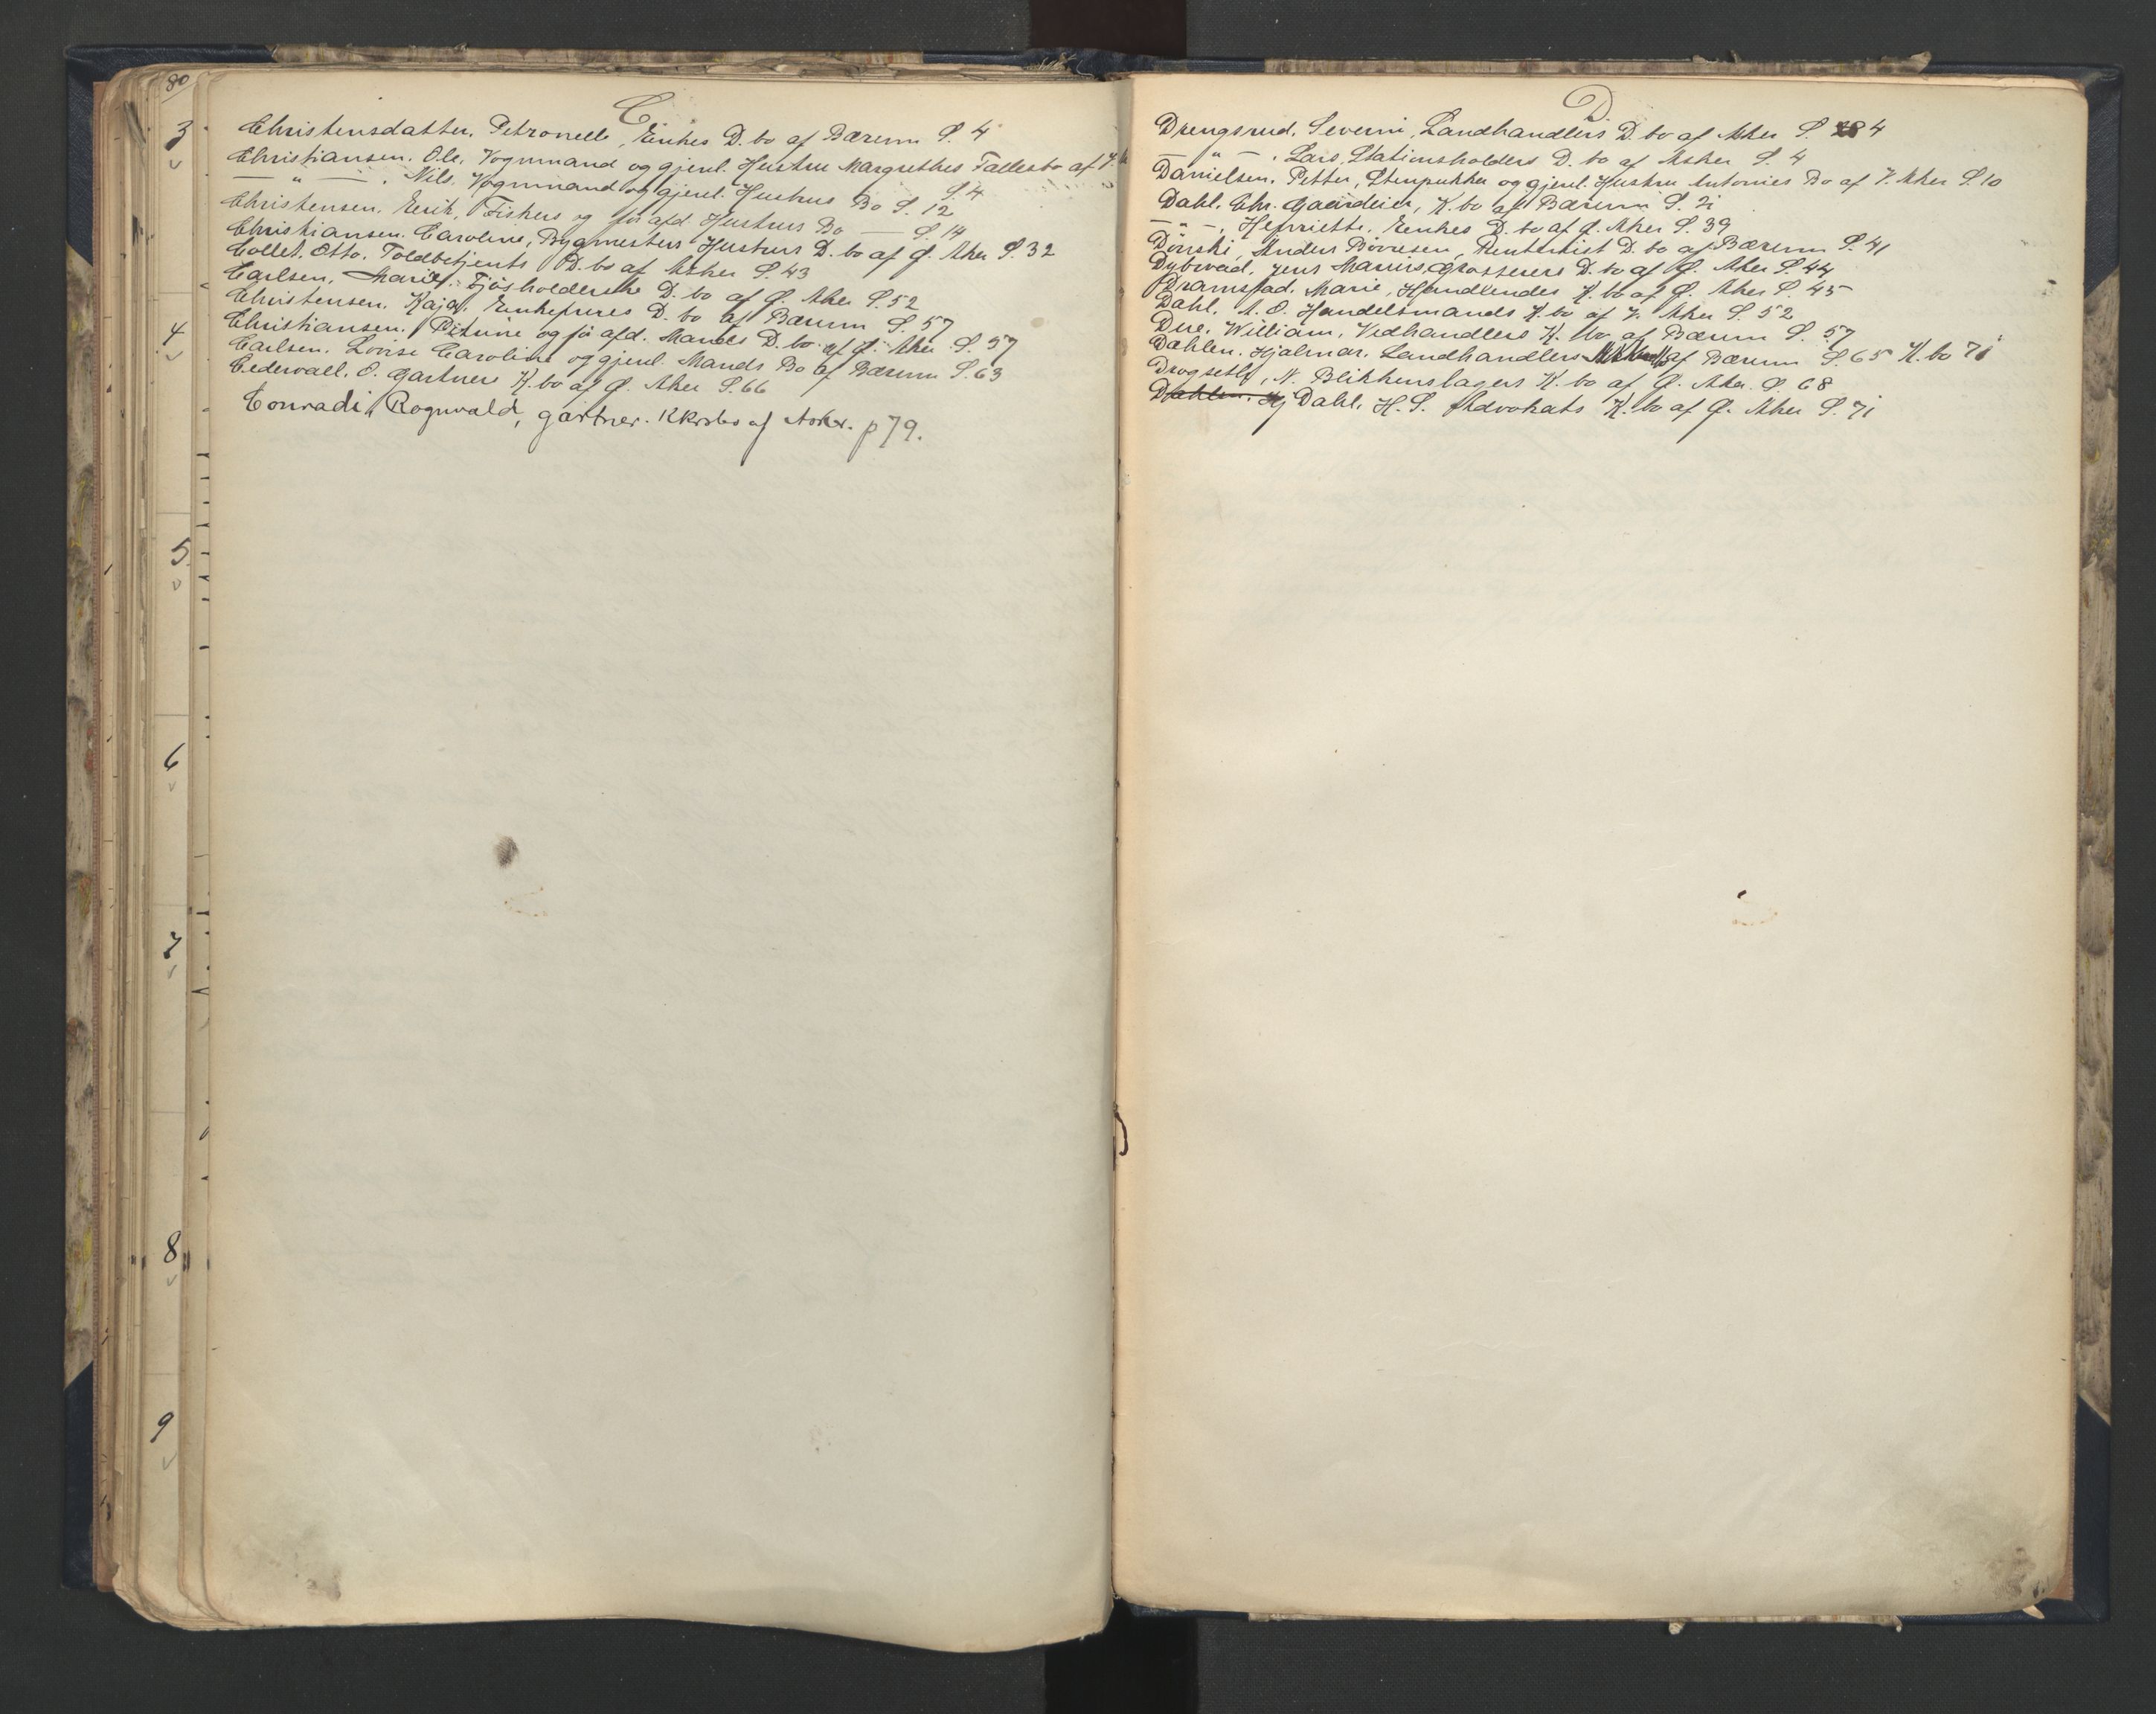 80
3
4
5
6
7
8
9
C
Christensdatter. Petronelle, Enkes D. bo af Bærum S. 4
Christiansen. Ole. Vognmand og gjenl. Hustru Margrethes Fællesbo af V.
— " — . Nils. Vognmand og gjenl. Hustrus Bo S. 4
Christensen. Erik, Fiskers og før afd. Hustrus Bo S. 12
Christiansen. Caroline, Bygmesters Hustrus Bo — S. 14
Collet. Otto. Toldbetjents D. bo af Ø. Aker S. 32
Carlsen. Marie. Fjøsholderske D. bo af Aker S. 43
Christensen. Kaja. Enkefrues D. bo af Ø. Aker S. 52
Christiansen. Petrine og før afd. Mands D. bo af Bærum S. 57
Carlsen. Lovise Caroline og gjenl. Mands Bo af Ø. Aker S. 57
Cedervall. O. Gartners K. bo af Ø. Aker S. 66 Bærum S. 63
Conradi, Rognvald, gartner. Kkrsbo af Asker. p 79.
D.
Drengsrud. Severin, Landhandlers D. bo af Asker S. 4
— " — . Lars, Stationsholders D. bo af Asker S. 4
Danielsen. Petter, Stenpukker og gjenl. Hustru Antonies Bo af V. Aker S. 10
Dahl. Chr. Gaardeier, K. bo af Bærum S. 21
— " — , Henriette. Enkes D. bo af Ø. Aker S. 39
Dönski, Anders Börresen, Rentenist D. bo af Bærum S. 41
Dybwad. Jens Marius, Grosserers D. bo af Ø. Aker S. 44
Dramstad. Marie, Handlendes K. bo af Ø. Aker S. 45
Dahl. A. O. Handelsmands K. bo af V. Aker S. 52
Due. William, Vedhandlers K. bo af Bærum S. 57
Dæhlen. Hjalmar. Landhandlers af Bærum S. 65 K. bo 71
Drogseth, N. Blikkenslagers K. bo af Ø. Aker S. 68
Dæhlen. Hj Dahl. H. S. Advokats K. bo af Ø. Aker S. 71